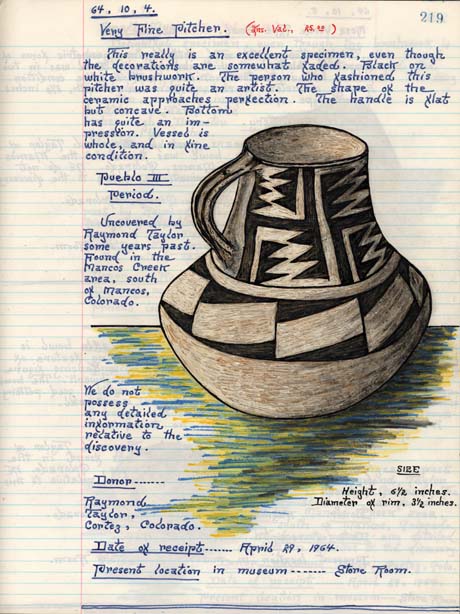 64. 10. 4.
219
Very Fine Pitcher. (Ins. Val., 25.00)
This really is an excellent specimen, even though
the decorations are somewhat faded. Black on
white brushwork. The person who fashioned this
pitcher was quite an artist. The shape of the
ceramic approaches perfection. The handle is flat
but concave. Bottom
has quite an im-
pression. Vessel is
whole, and in fine
condition.
Pueblo III
Period.
Uncovered by
Raymond Taylor
some years past.
Found in the
Mancos Creek
area, south
of Mancos,
Colorado.
We do not
possess
any detailed
information
relative to the
discovery.
SIZE
Height, 6 1/2 inches.
Diameter of rim, 3 1/2 inches.
Donor-------
Raymond
Taylor,
Cortez, Colorado.
Date of receipt------ April 29, 1964.
Present location in museum ------- Store Room.